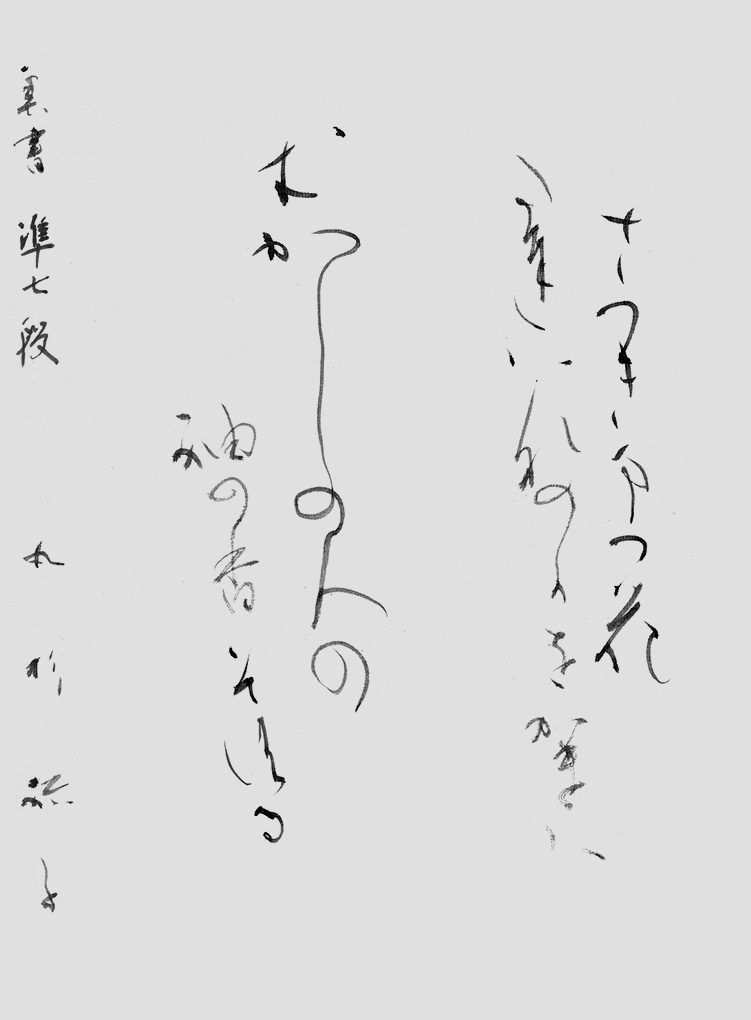 さつきまつ花
たちはなのかをかけは
むかしの人の
袖の香そする
書 準七段 子